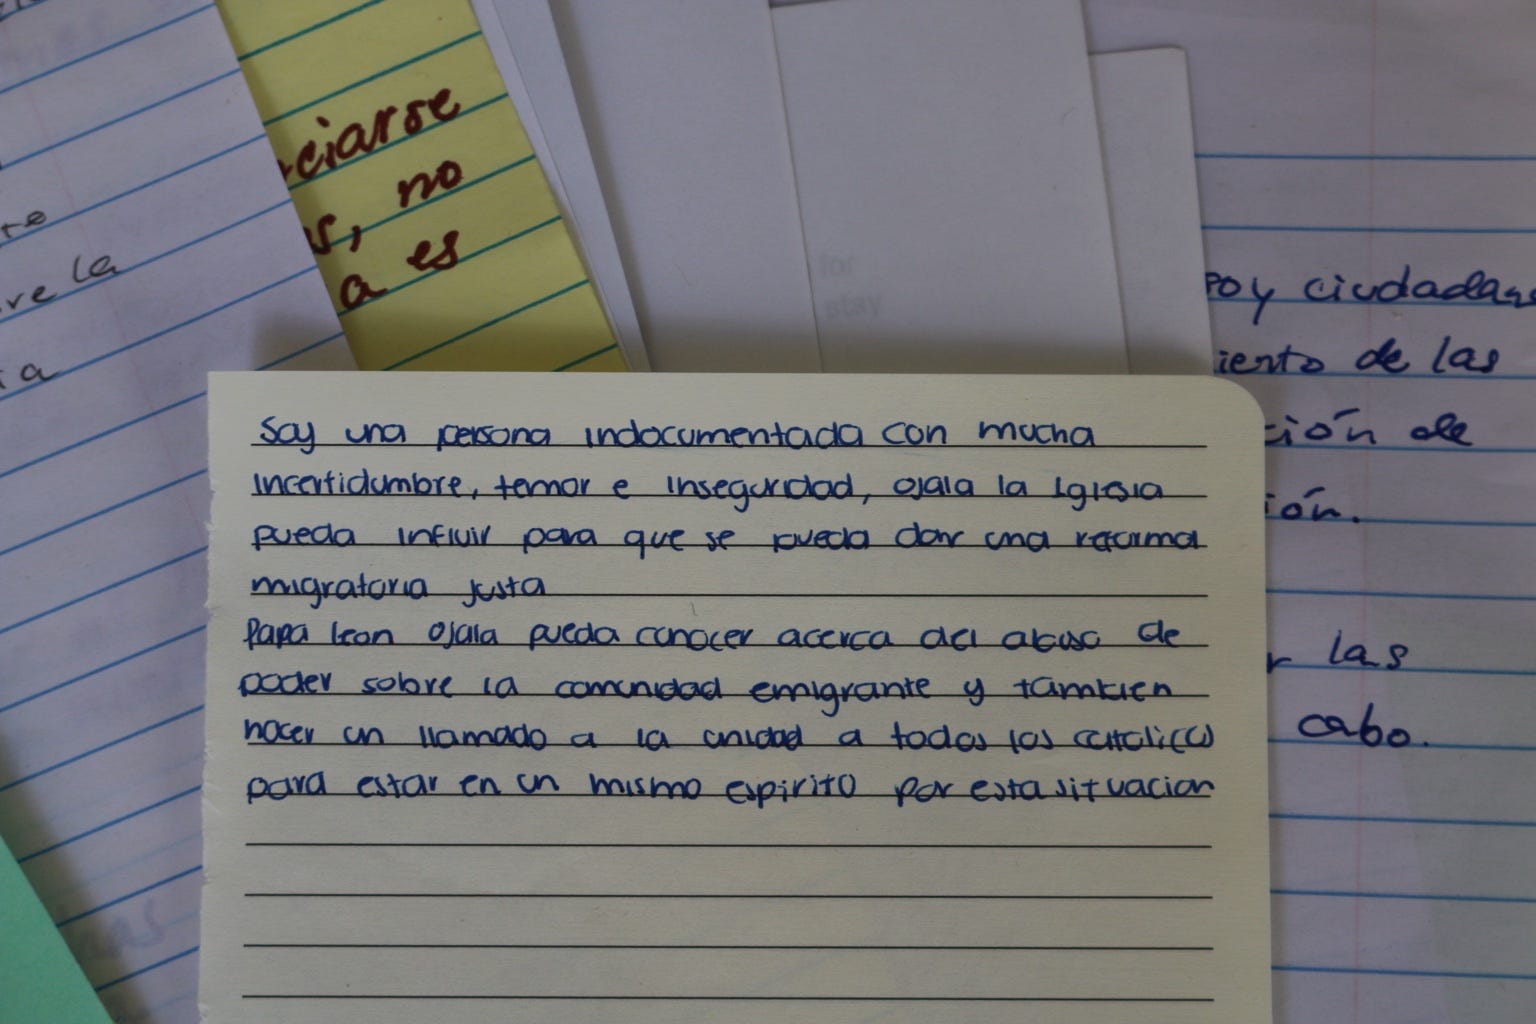 ciarse
s, no
a es
re la
ia
for
stay
soy ciudadano
iento de las
ción de
ión.
r las
cabo.
Soy una persona indocumentada con mucha
incertidumbre, temor e inseguridad, ojala la Iglesia
pueda influir para que se pueda dar una reforma
migratoria justa
Papa leon ojala pueda conocer acerca del abuso de
poder sobre la comunidad emigrante y tambien
hacer un llamado a la unidad a todos los catolicos
para estar en un mismo espirito por esta situacion